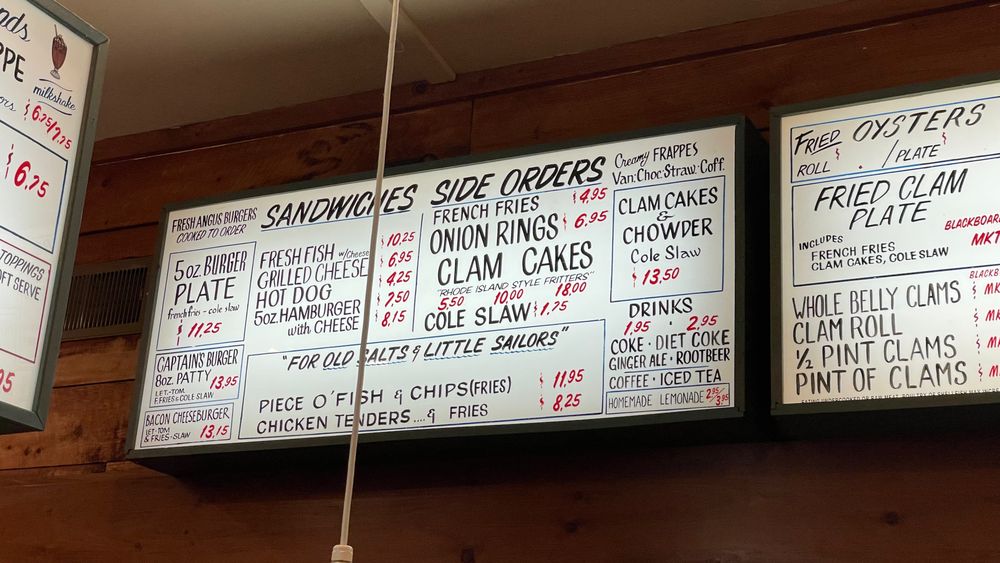 nds
PPE
milkshake
ors
$6.75/7.75
$6.75
TOPPINGS
OFT SERVE
95
FRESH ANGUS BURGERS
COOKED TO ORDER
5 OZ. BURGER
PLATE
french fries - cole slaw
$11.25
CAPTAIN'S BURGER
8oz. PATTY 13.95
LET-TOM
F. FRIES & COLE SLAW
BACON CHEESEBURGER
LET-TOM
& FRIES-SLAW 13.15
SANDWICHES
FRESH FISH w/Cheese $10.25
GRILLED CHEESE $6.95
HOT DOG $4.25
5oz. HAMBURGER $7.50
with CHEESE $8.15
SIDE ORDERS
FRENCH FRIES $4.95
ONION RINGS $6.95
CLAM CAKES
"RHODE ISLAND STYLE FRITTERS"
5.50 10.00 18.00
COLE SLAW $1.75
"FOR OLD SALTS & LITTLE SAILORS"
PIECE O'FISH & CHIPS (FRIES) $11.95
CHICKEN TENDERS....& FRIES $8.25
Creamy FRAPPES
Van: Choc. Straw: Coff.
CLAM CAKES
&
CHOWDER
Cole Slaw
$13.50
DRINKS
1.95 · 2.95
COKE · DIET COKE
GINGER ALE · ROOTBEER
COFFEE · ICED TEA
HOMEMADE LEMONADE 2.95/3.95
FRIED OYSTERS
ROLL $ . /PLATE $
FRIED CLAM
PLATE
INCLUDES
FRENCH FRIES
CLAM CAKES, COLE SLAW
BLACKBOAR
MKT
WHOLE BELLY CLAMS $ MK
CLAM ROLL $ MK
½ PINT CLAMS $ M
PINT OF CLAMS $ M